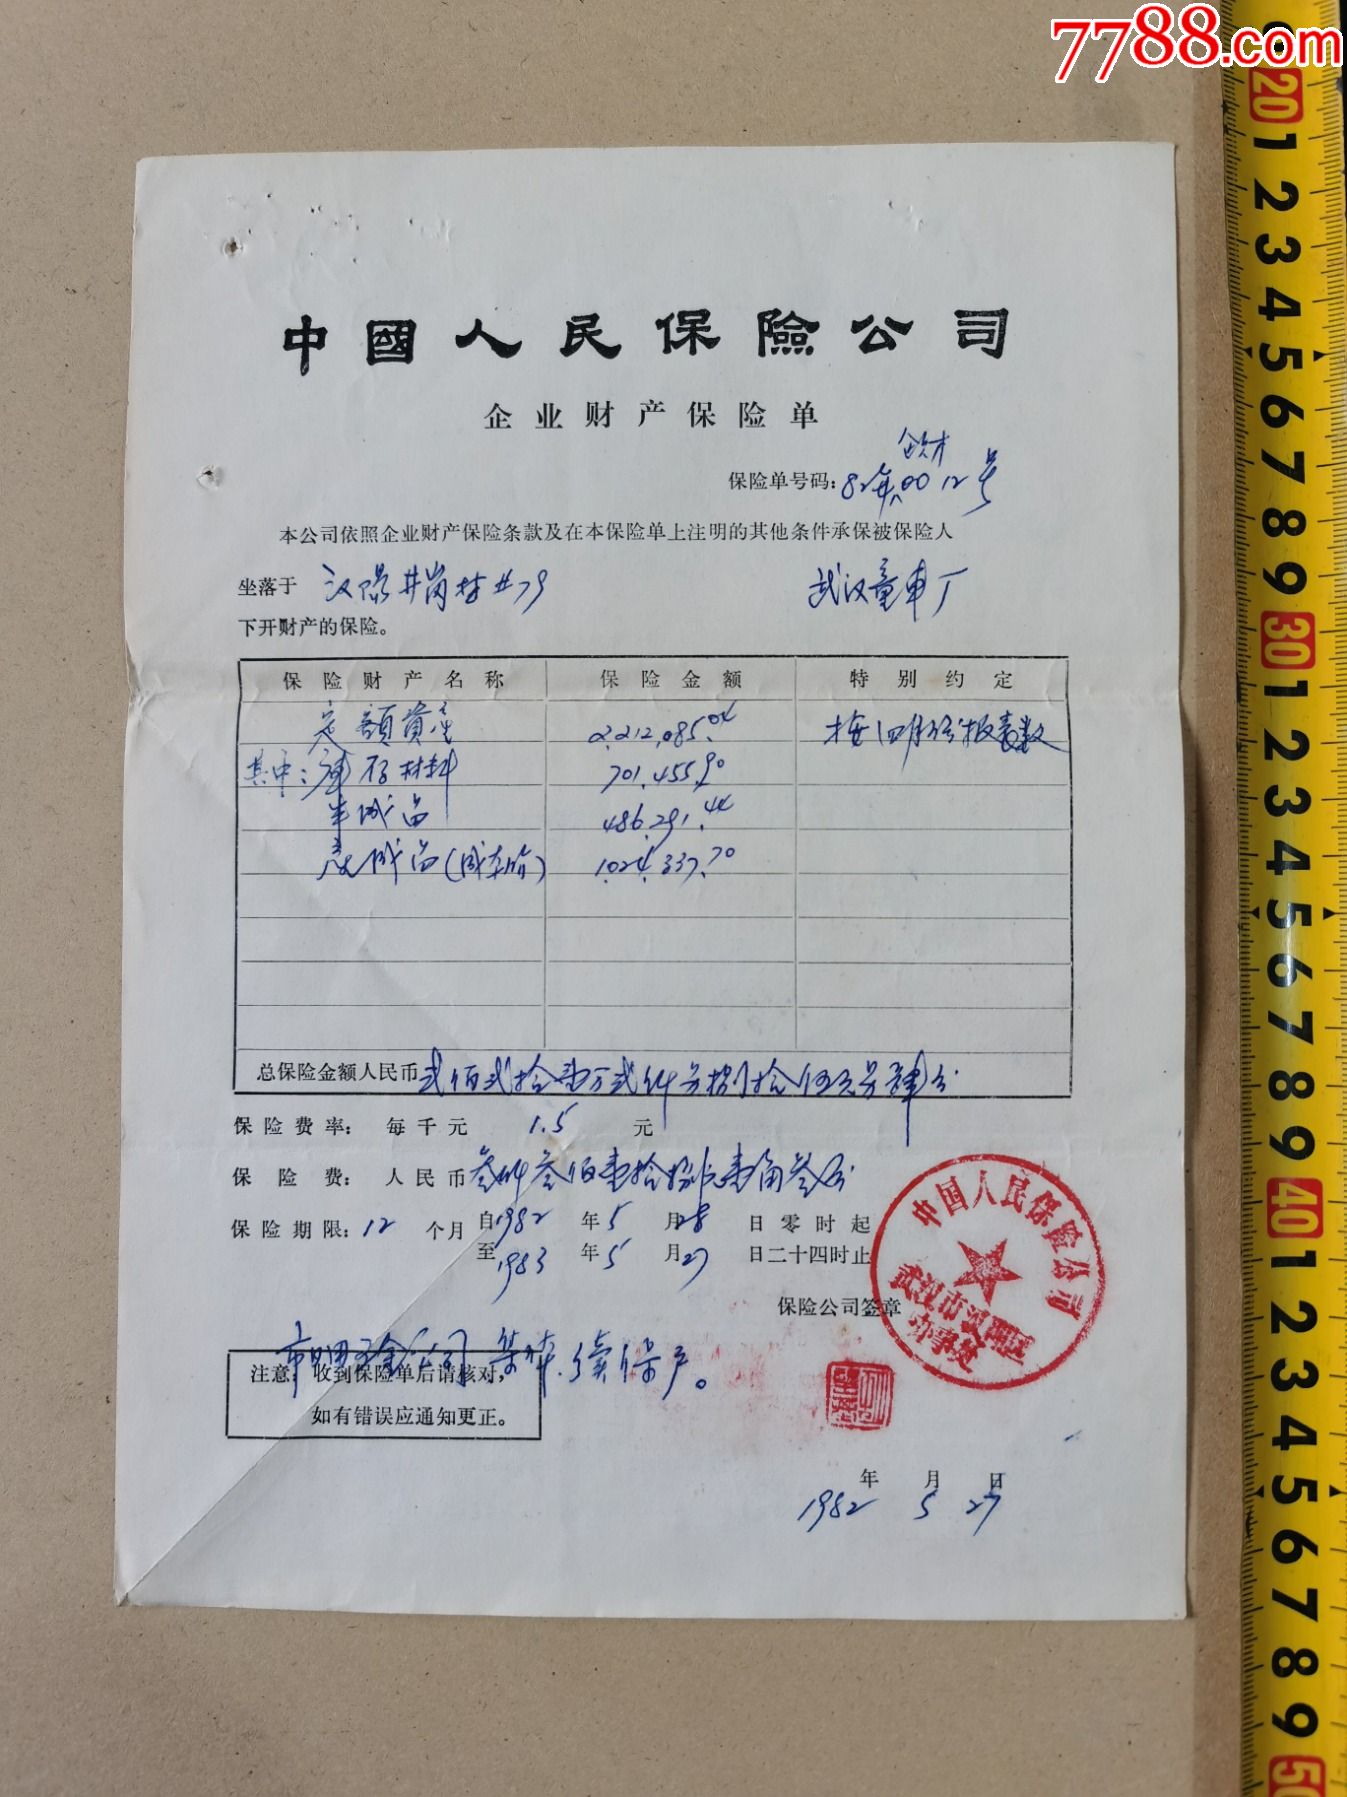 7788.com
中國人民保險公司
企业财产保险单
企财
保险单号码：82年0012号
本公司依照企业财产保险条款及在本保险单上注明的其他条件承保被保险人
坐落于 武汉童车厂
下开财产的保险。
保险财产名称 保险金额 特别约定
定额資产 2,212,085.04 按四月份报表数
其中：库存材料 701,455.90
半成品 486,291.44
产成品 1,024,337.70
总保险金额人民币 贰佰贰拾壹万贰仟另捌拾伍元另肆分
保险费率： 每千元 1.5 元
保险费： 人民币 叁仟叁佰壹拾捌元壹角叁分
保险期限：12 个月 自1982 年5 月28 日零时起
至1983 年5 月27 日二十四时止
保险公司签章
中国人民保险公司
武汉市汉阳区
办事处
续保户。
注意：收到保险单后请核对，
如有错误应通知更正。
1982年 5月 27日
20 1 2 3 4 5 6 7 8 9 30 1 2 3 4 5 6 7 8 9 40 1 2 3 4 5 6 7 8 9 50